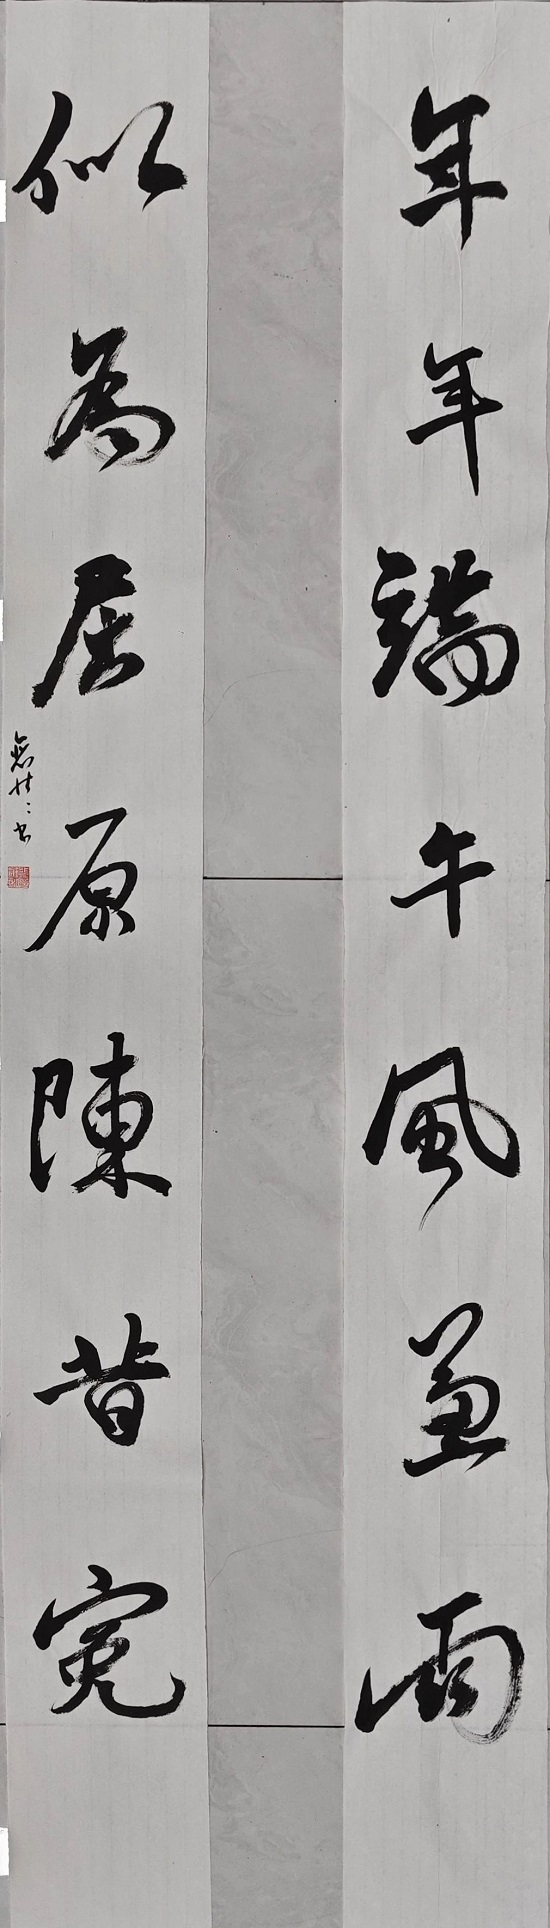 年年端午風兼雨
似為屈原陳昔冤